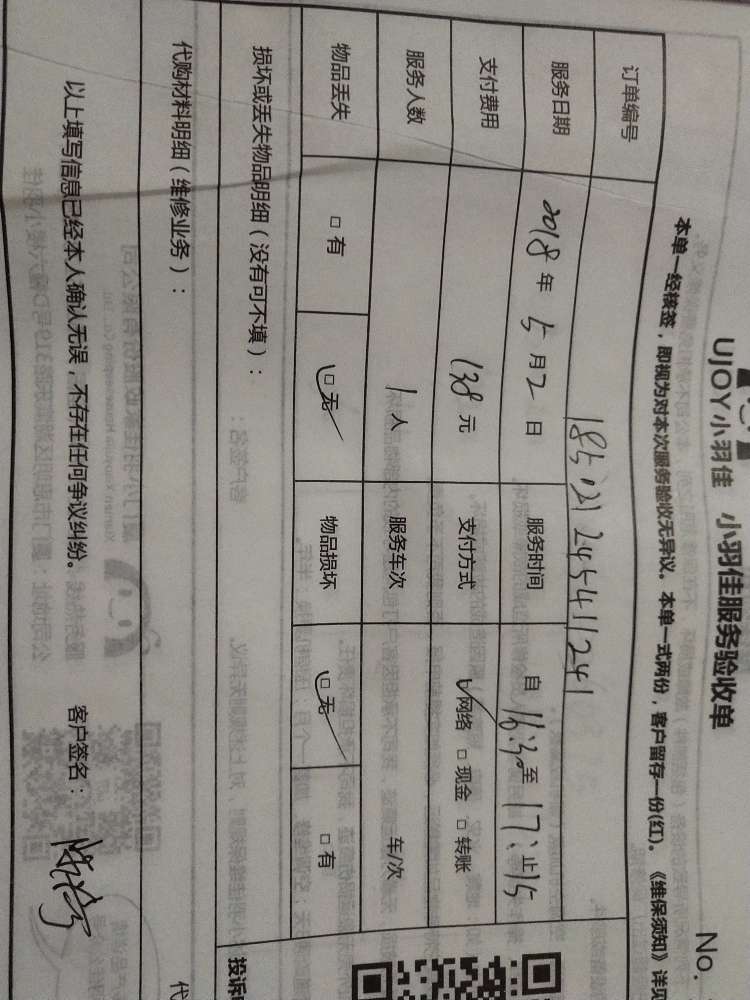 UJOY小羽佳 小羽佳服务验收单 No.
本单一经核签，即视为对本次服务验收无异议。本单一式两份，客户留存一份(红)。《维保须知》详见
订单编号 18502124541241
服务日期 2018年5月2日 服务时间 自16:30至17:15止
支付费用 138元 支付方式 ☑网络 □现金 □转账
服务人数 1人 服务车次 车/次
物品丢失 □有 ☑无 物品损坏 ☑无 □有
损坏或丢失物品明细（没有可不填）： 投诉电
代购材料明细（维修业务）： 代
以上填写信息已经本人确认无误，不存在任何争议纠纷。 客户签名：